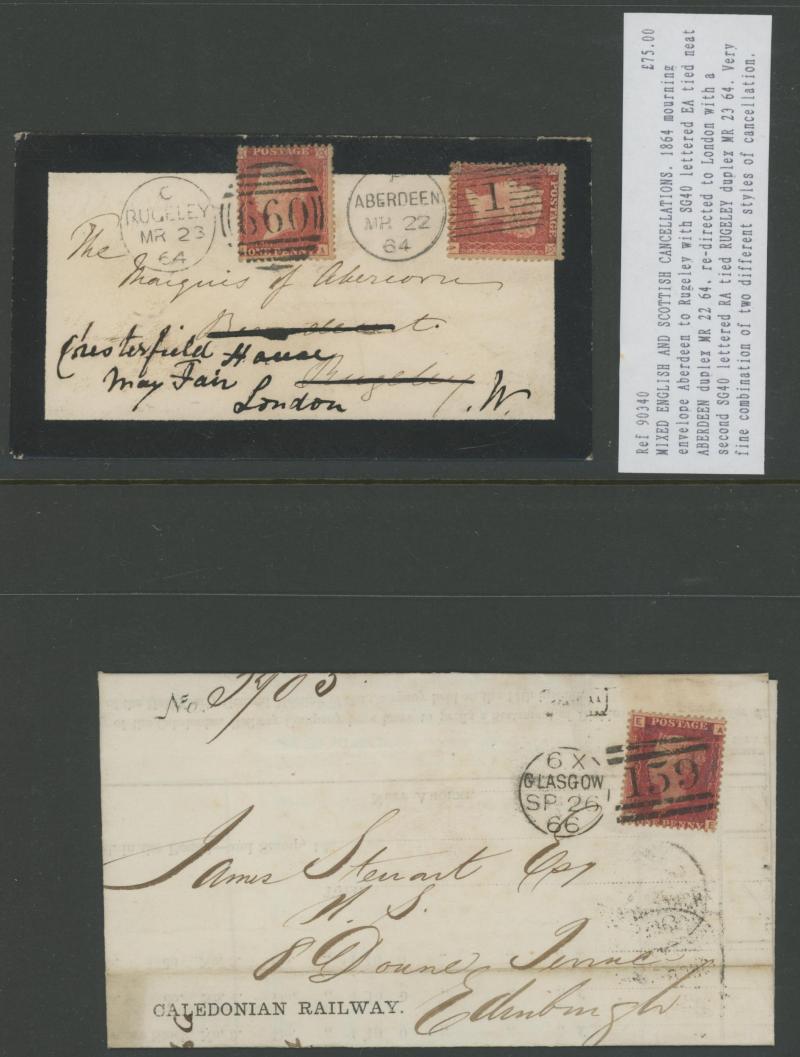 Ref 90340 £75.00
MIXED ENGLISH AND SCOTTISH CANCELLATIONS. 1864 mourning
envelope Aberdeen to Rugeley with SG40 lettered EA tied neat
ABERDEEN duplex MR 22 64, re-directed to London with a
second SG40 lettered RA tied RUGELEY duplex MR 23 64. Very
fine combination of two different styles of cancellation.
C
RUGELEY
MR 23
64
POSTAGE
860
ONE PENNY A
F
ABERDEEN
MR 22
64
1
POSTAGE
The
Marquis of Abercorn
Chesterfield House
May Fair
Rugeley
London .W.
No. 3903
6 X
GLASGOW
SP 26
66
E POSTAGE A
159
PENNY E
James Stewart Esq
W. S.
8 Doune Terrace
Edinburgh
CALEDONIAN RAILWAY.